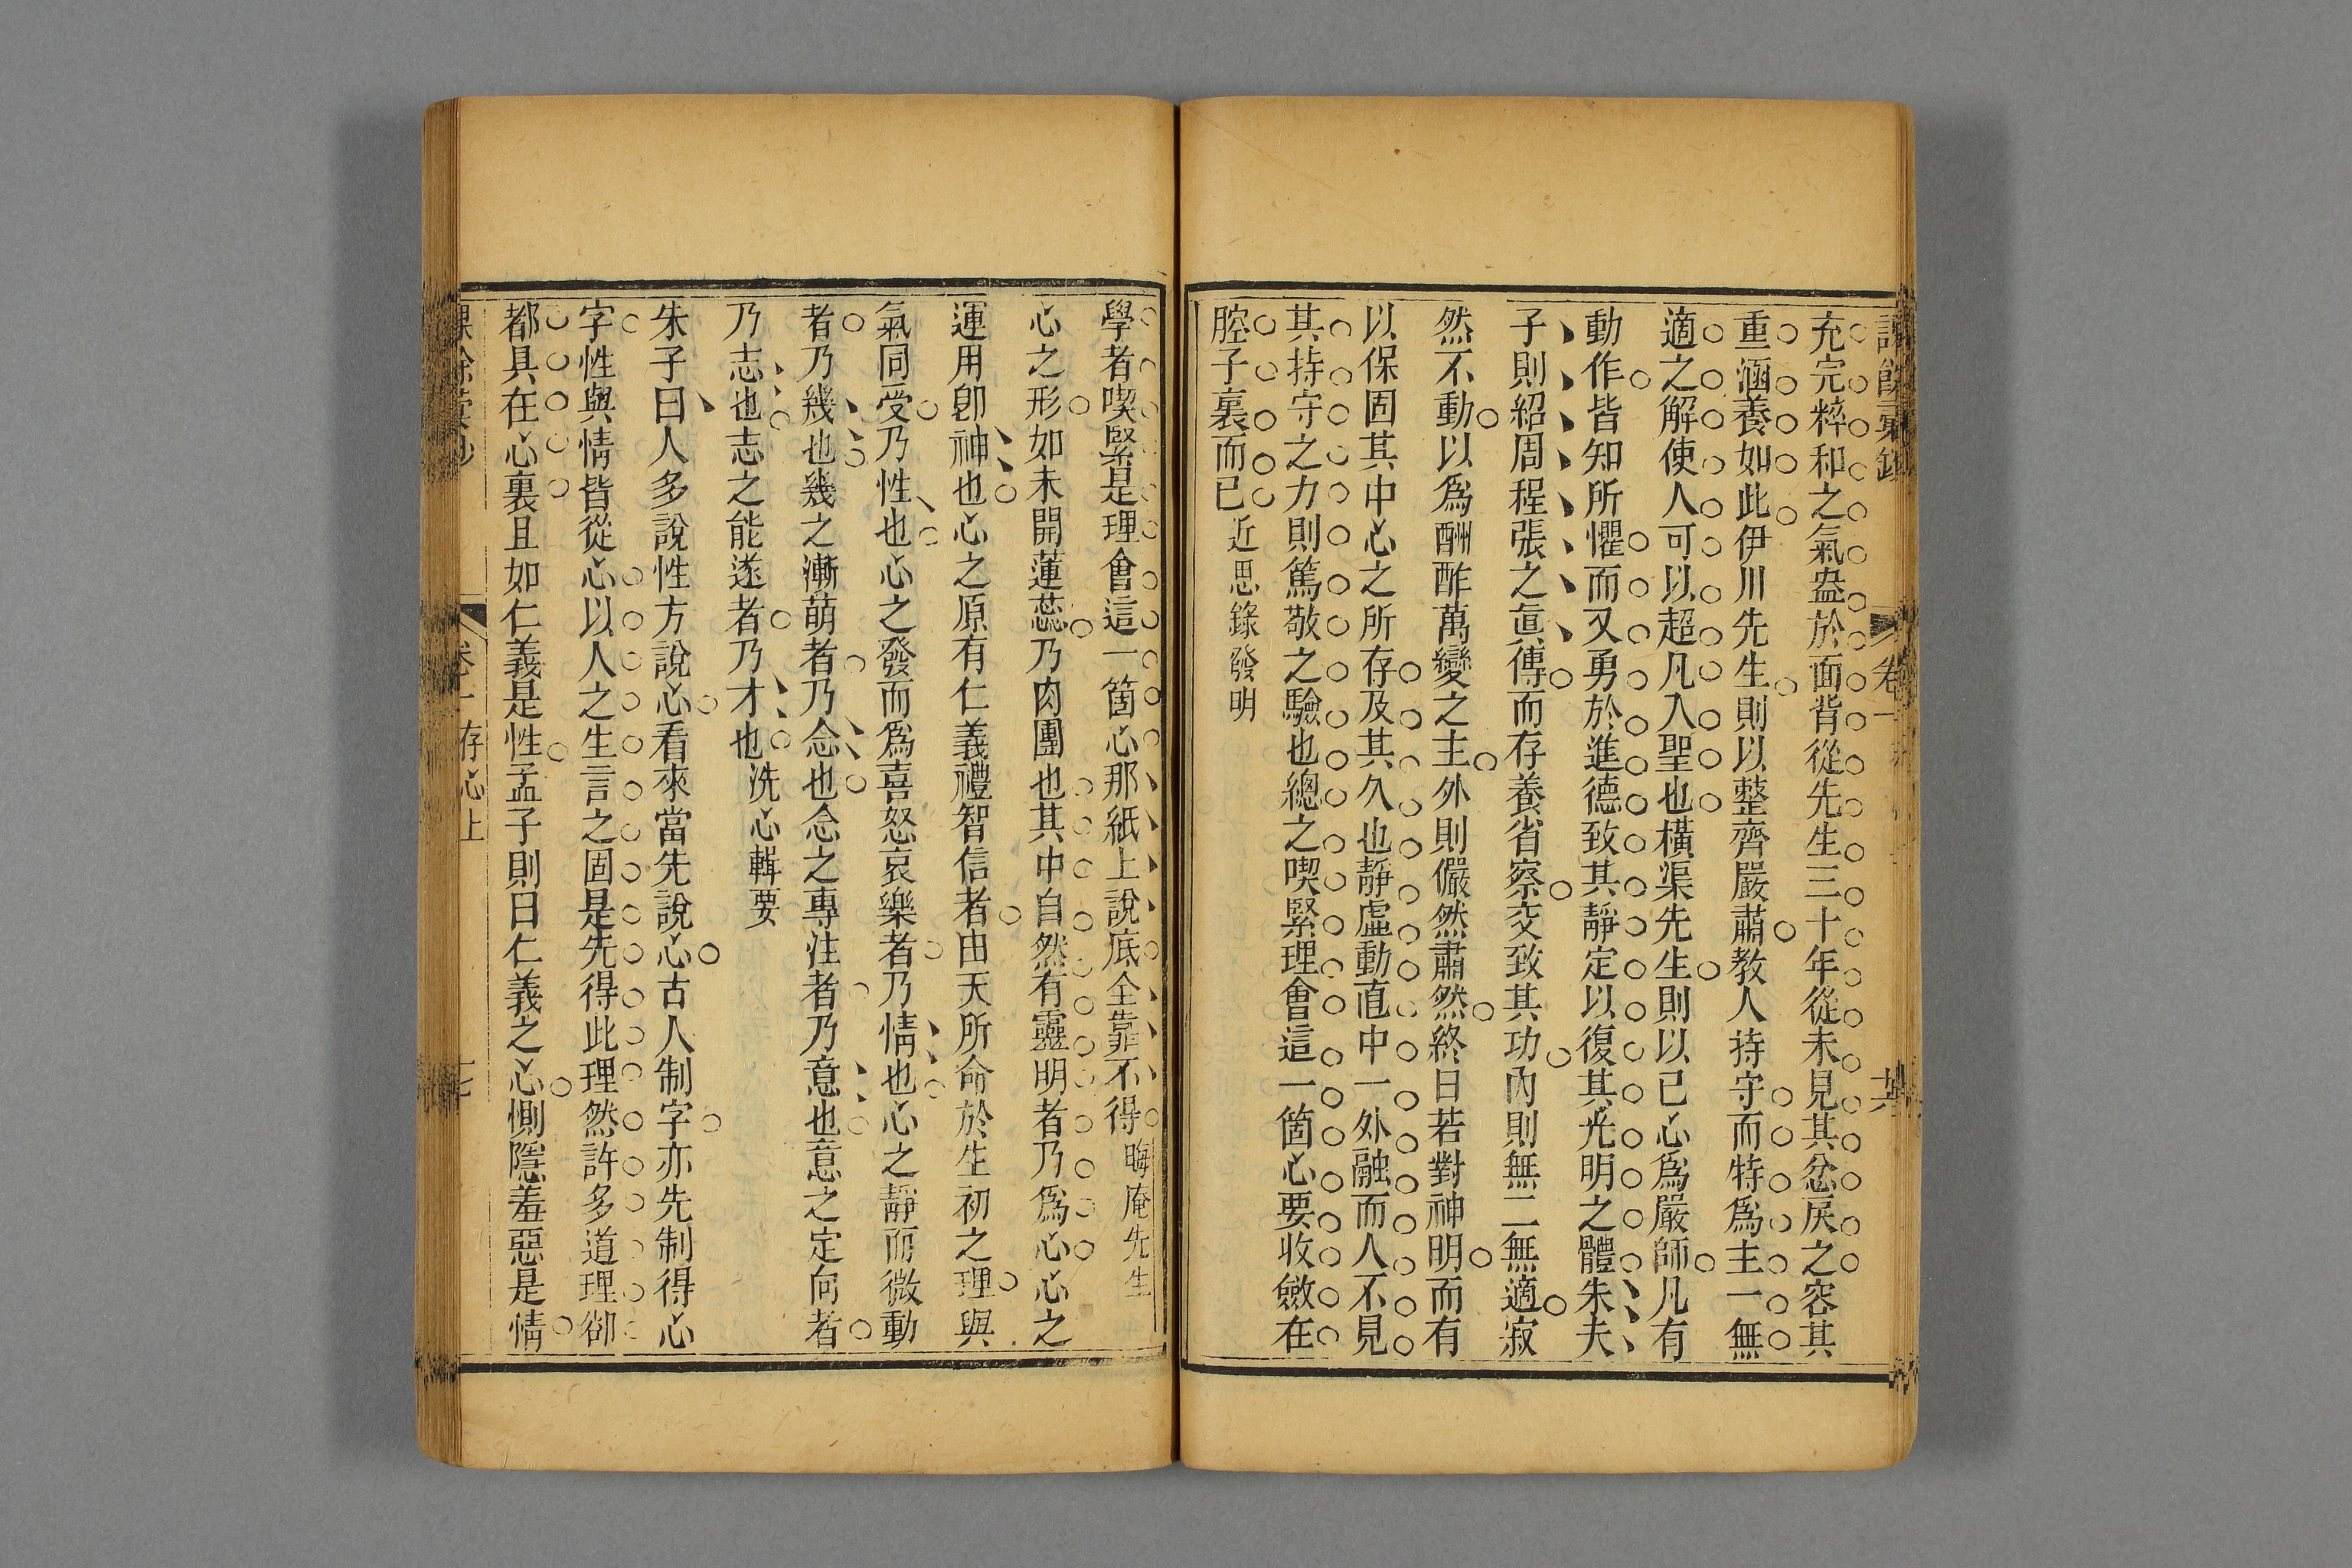 充完粹和之氣盎於面背從先生三十年從未見其忿戾之容其
重涵養如此伊川先生則以整齊嚴肅教人持守而特爲主一無
適之解使人可以超凡入聖也橫渠先生則以己心爲嚴師凡有
動作皆知所懼而又勇於進德致其靜定以復其光明之體朱夫
子則紹周程張之眞傳而存養省察交致其功內則無二無適寂
然不動以爲酬酢萬變之主外則儼然肅然終日若對神明而有
以保固其中心之所存及其久也靜虛動直中一外融而人不見
其持守之力則篤敬之驗也總之喫緊理會這一箇心要收斂在
腔子裏而已近思錄發明
學者喫緊是理會這一箇心那紙上說底全靠不得晦庵先生
心之形如未開蓮蕊乃肉團也其中自然有靈明者乃爲心心之
運用卽神也心之原有仁義禮智信者由天所命於生初之理與
氣同受乃性也心之發而爲喜怒哀樂者乃情也心之靜而微動
者乃幾也幾之漸萌者乃念也念之專注者乃意也意之定向者
乃志也志之能遂者乃才也洗心輯要
朱子曰人多說性方說心看來當先說心古人制字亦先制得心
字性與情皆從心以人之生言之固是先得此理然許多道理卻
都具在心裏且如仁義是性孟子則曰仁義之心惻隱羞惡是情
卷一存心上